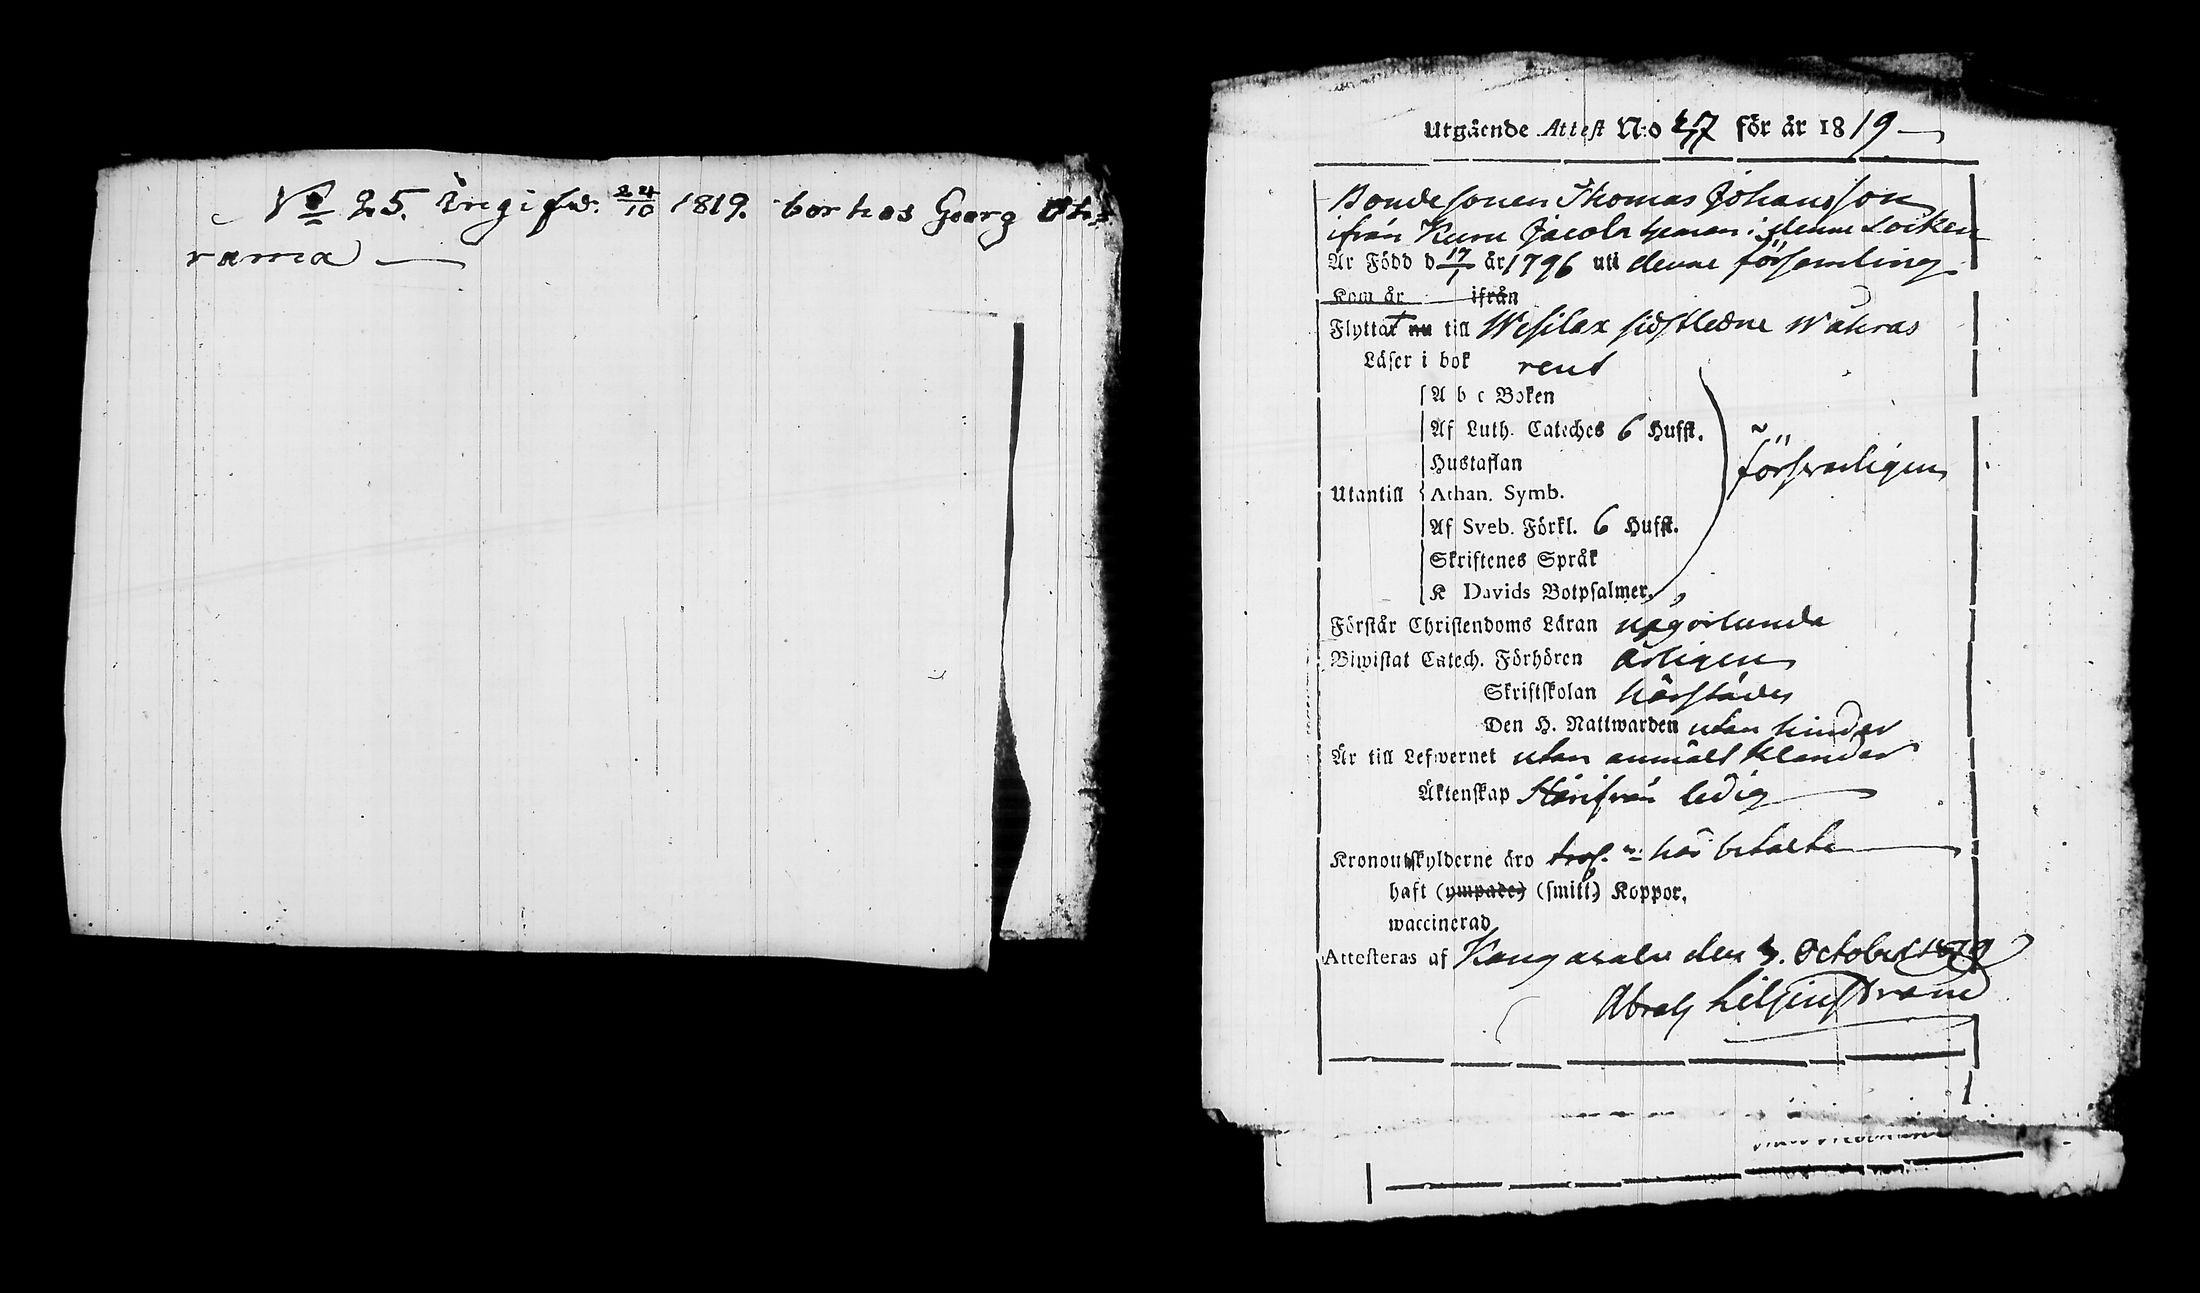 No 25. Ingifw. 24/10 1819. bor hos Georg
rama
Utgående Attest N:o 27 för år 1819
Bondesonen Thomas Johansson
ifrån Kuru Jacobs heman i denne Socken
Är Född d 17/1 år 1796 uti denne församling
Kom år ifrån
Flyttat nu till Wesilax sidstledne Wåhras
Läser i bok rent
A b c Boken
Af Luth. Cateches 6 Hufst.
Hustaflan
försvarligen
Utantill Athan. Symb.
Af Sveb. Förkl. 6 Hufst.
Skriftenes Språk
K Davids Botpsalmer.
Förstår Christendoms Läran någorlunda
Biwistat Catech. Förhören årligen
Skriftskolan härstädes
Den H. Nattwarden utan hinder
Är till Lefwernet utan anmält klander
Äktenskap Härifrån ledig
Kronoutskylderne äro här betalte
haft (ympade) (smitt) Koppor,
waccinerad
Attesteras af Kangasala den 3. October 1819
Abrah Liljenstrand